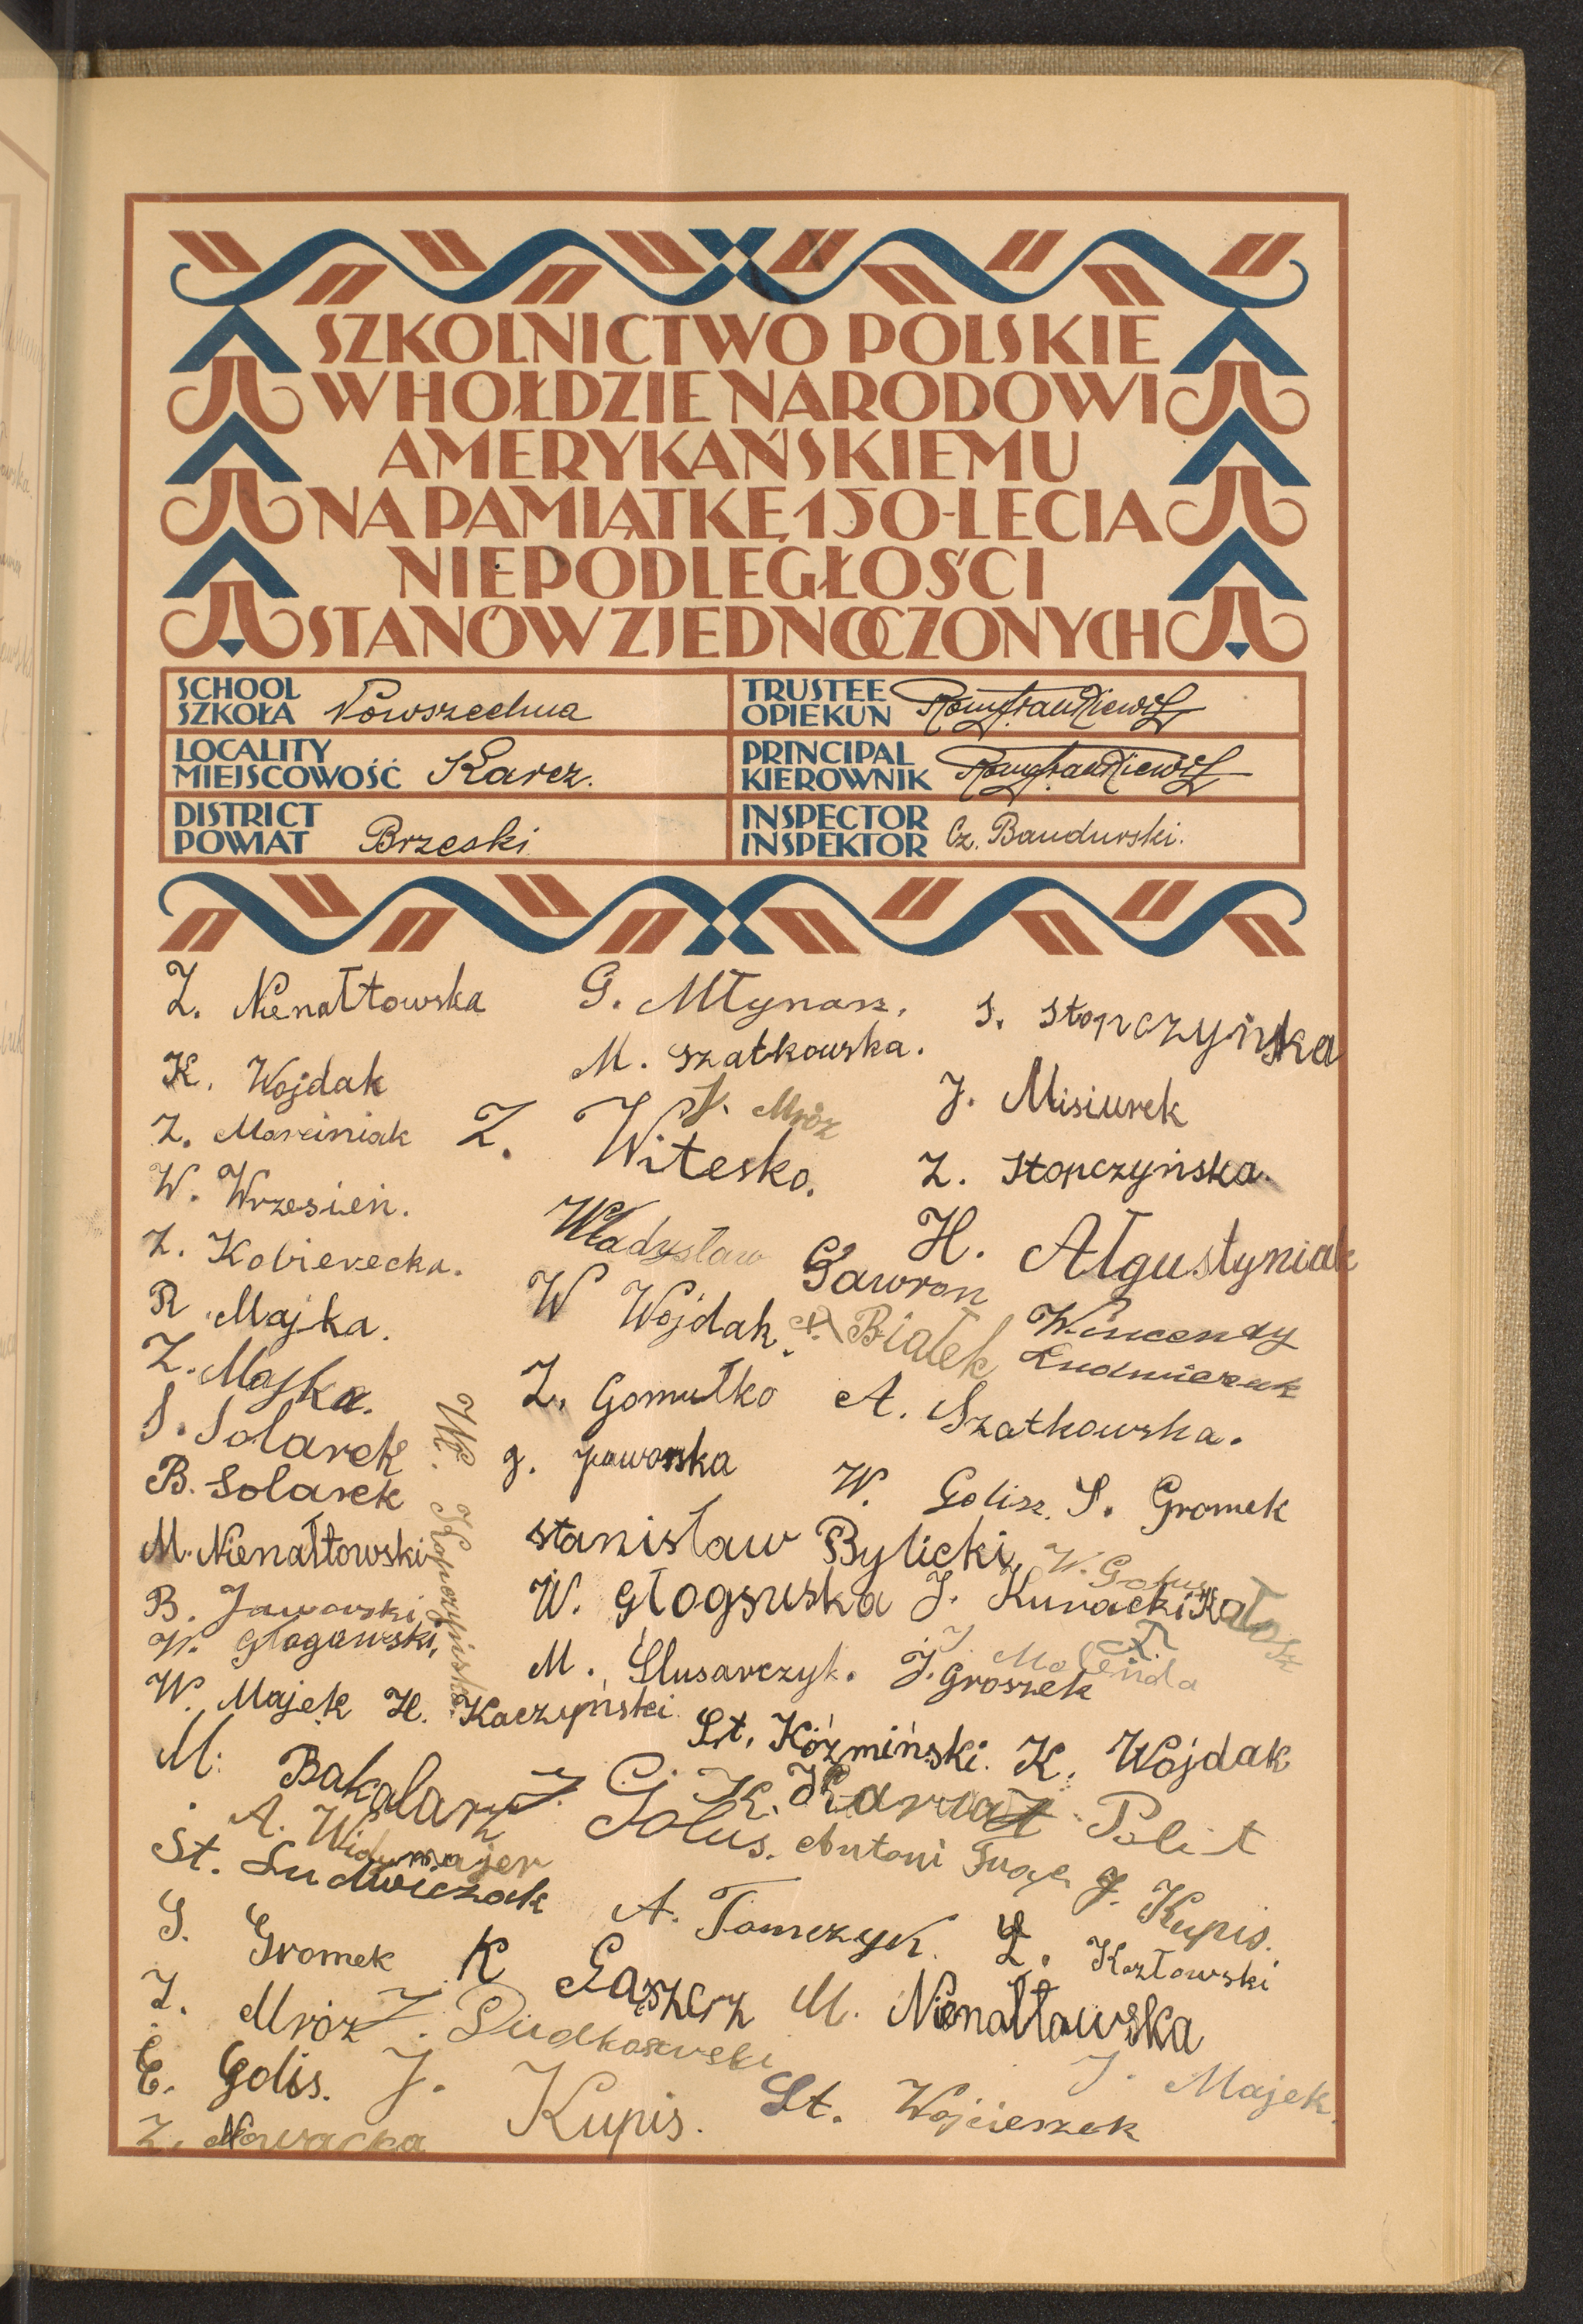 SZKOLNICTWO POLSKIE
W HOŁDZIE NARODOWI
AMERYKAŃSKIEMU
NA PAMIĄTKĘ 150-LECIA
NIEPODLEGŁOŚCI
STANÓW ZJEDNOCZONYCH
SCHOOL
SZKOŁA Powszechna
TRUSTEE
OPIEKUN
LOCALITY
MIEJSCOWOŚĆ Karcz.
PRINCIPAL
KIEROWNIK
DISTRICT
POWIAT Brzeski
INSPECTOR
INSPEKTOR Cz. Bandurski.
Z. Nienałtowska G. Młynarz. S. Stopczyńska
K. Wojdak M. Szatkowska. J. Misiurek
J. Mróz
Z. Marciniak Z. Witesko. Z. Stopczyńska.
W. Wrzesień. Władysław Gawron H. Ałgustyniak
Z. Kobierecka. W Wojdak. Białek Wincendy
R. Majka.
Z. Majka. Z. Gomułko A. Szatkowska.
S. Solarek J. Jaworska W. Golisz. S. Gromek
B. Solarek Wł. Kopczyński
M. Nienałtowski Stanisław Bylicki, W. Golus
B. Jaworski, W. J. Kuracki Kałosz
W. Głogowski, M. Ślusarczyk. J. Groszek J. Molenda
W. Majek H. Kaczyński St. Koźmiński. K. Wojdak
M. Bakalarz J. Golus. K. Karwat Polit
A. Widymajer Antoni
St. Ludwiczak A. Tomczyk. J. Kupis.
S. Gromek K Gąszcz Z. Kozłowski
Z. Mróz Z. Dudkowski M. Nienałtowska
E. Golis. J. Kupis. St. Wojcieszek J. Majek.
Z. Nowacka